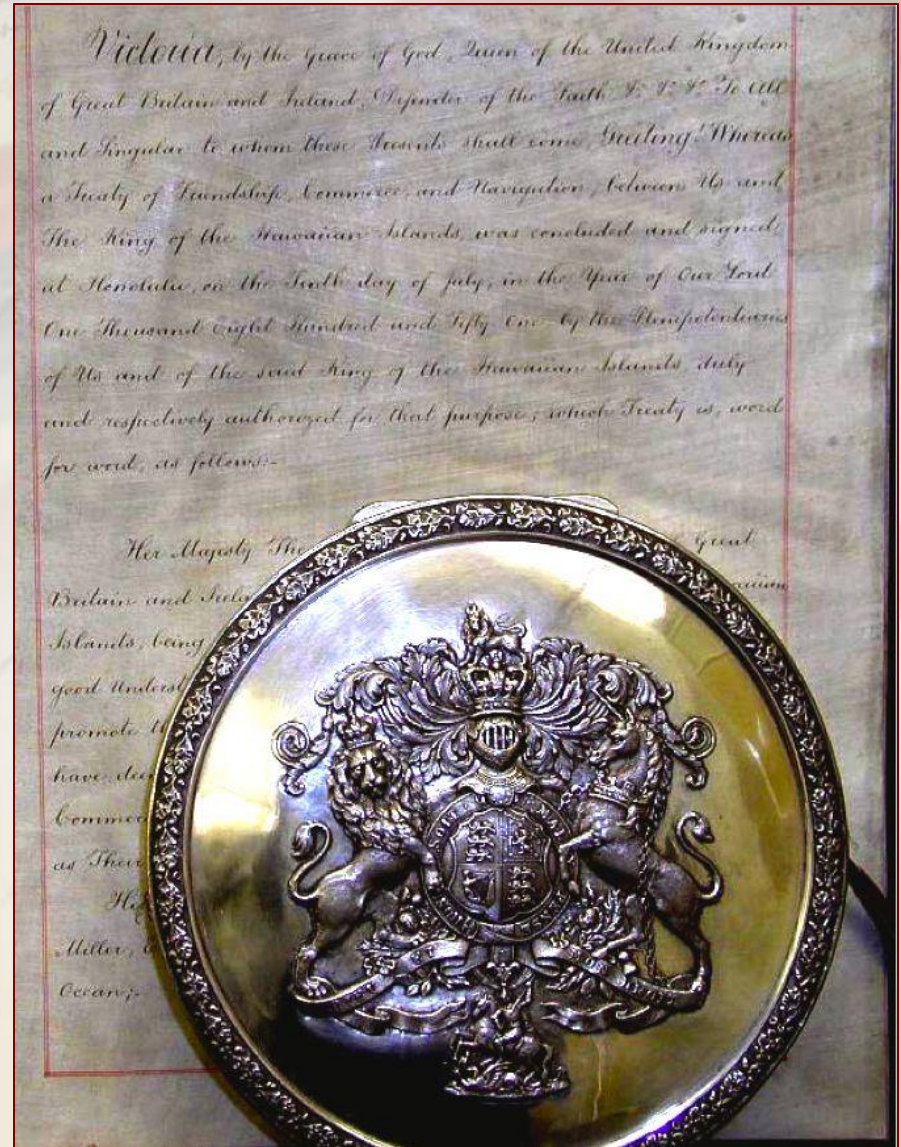 Victoria, by the Grace of God, Queen of the United Kingdom
of Great Britain and Ireland, Defender of the Faith &c. &c. &c. To All
and Singular to whom these Presents shall come, Greeting! Whereas
a Treaty of Friendship, Commerce, and Navigation, between Us and
The King of the Hawaiian Islands, was concluded and signed
at Honolulu, on the Tenth day of July, in the Year of Our Lord
One Thousand Eight Hundred and Fifty One by the Plenipotentiaries
of Us and of the said King of the Hawaiian Islands duly
and respectively authorized for that purpose; which Treaty is, word
for word, as follows:-
Her Majesty The Great
Britain and
Islands, being
good
promote
have
as
Miller,
Ocean;-